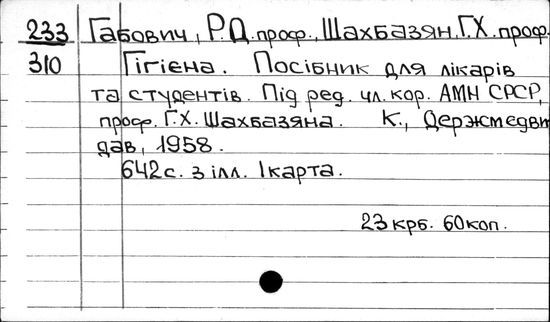 233 Габович, Р.Д. проф., Шахбазян. Г.Х. проф.
310 Гігієна. Посібник для лікарів
та студентів. Під ред. чл. кор. АМН СРСР,
проф. Г.Х. Шахбазяна. К., Держмедви
дав, 1958.
642 с. з ілл. 1 карта.
23 крб. 60 коп.